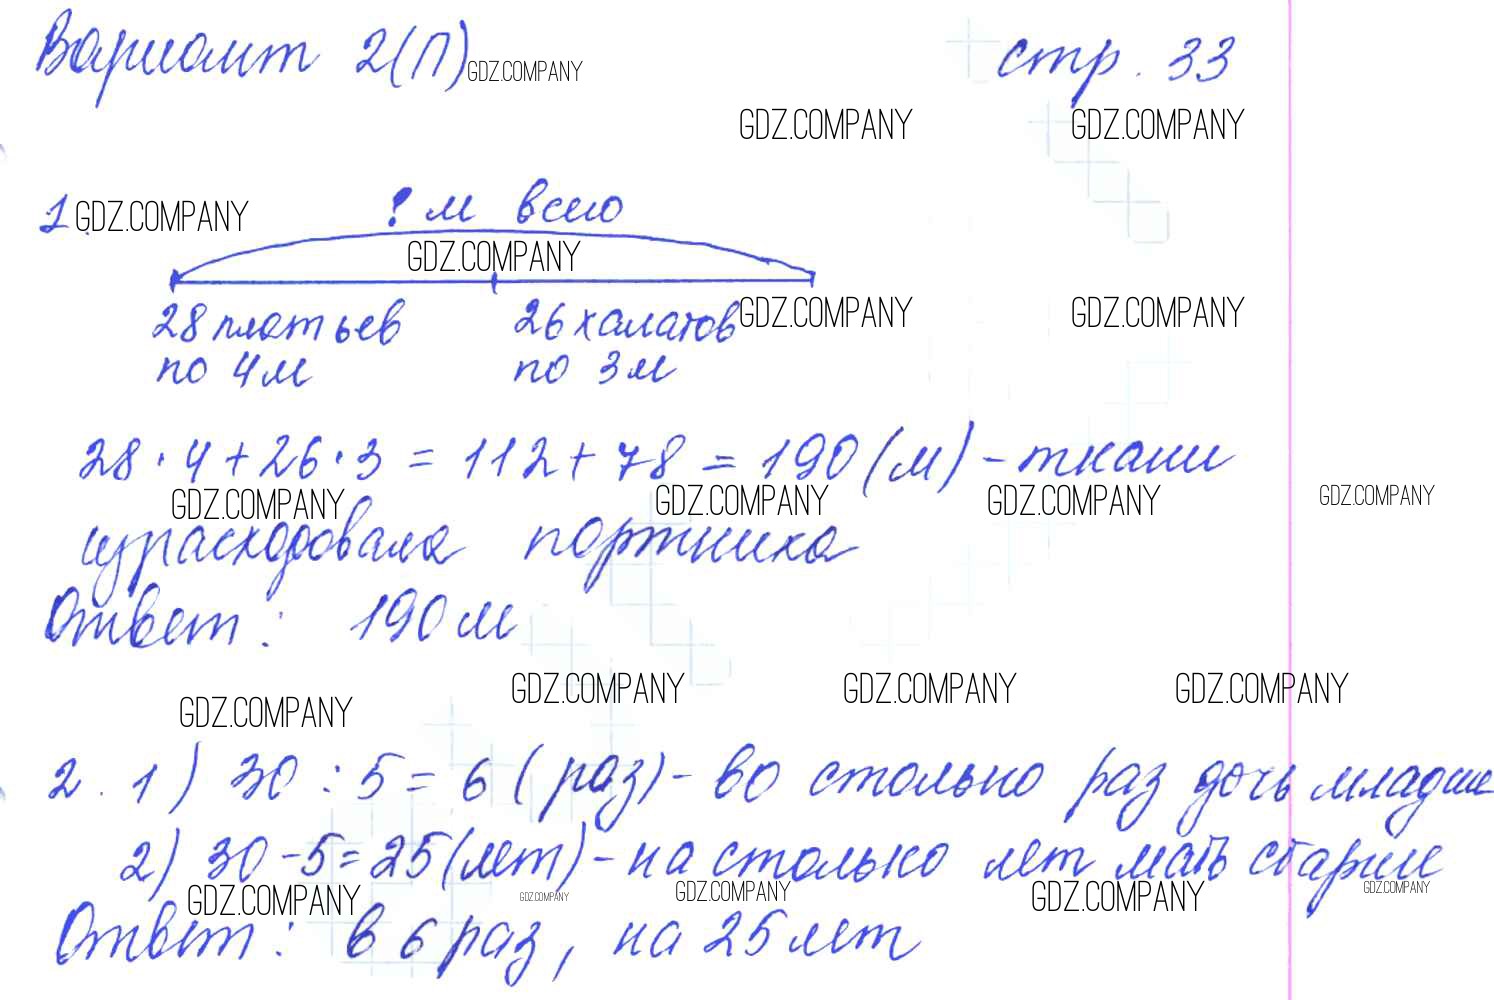 Вариант 2(П) GDZ.COMPANY стр. 33
GDZ.COMPANY GDZ.COMPANY
1. GDZ.COMPANY ? м всего
GDZ.COMPANY
28 платьев 26 халатов GDZ.COMPANY GDZ.COMPANY
по 4 м по 3 м
28 · 4 + 26 · 3 = 112 + 78 = 190 (м) - ткани
GDZ.COMPANY GDZ.COMPANY GDZ.COMPANY GDZ.COMPANY
израсходовала портниха
Ответ: 190 м
GDZ.COMPANY GDZ.COMPANY GDZ.COMPANY GDZ.COMPANY
2. 1) 30 : 5 = 6 (раз) - во столько раз дочь младше
2) 30 - 5 = 25 (лет) - на столько лет мать старше
GDZ.COMPANY GDZ.COMPANY GDZ.COMPANY GDZ.COMPANY GDZ.COMPANY
Ответ: в 6 раз, на 25 лет